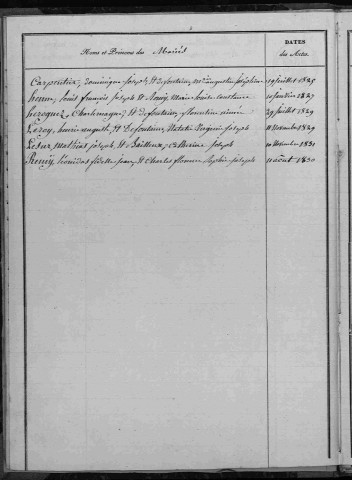 Noms et Prénoms des Mariés
DATES
des Actes.
Carpentier, dominique joseph, et defontaine, augustine joséphine 19 juillet 1825
louis françois joseph et marie louise constance 1827
Charlemagne, et defontaine, florentine aimée 29 juillet 1829
Leroy, lucien august, et Defontaine, Natalie Virginie joseph 11 Novembre 1829
Lesur, mathias joseph, et Bailleux, Catherine joseph 1830
Remy, léonidas fidelle jean, et Charles florence Sophie joseph 11 août 1830